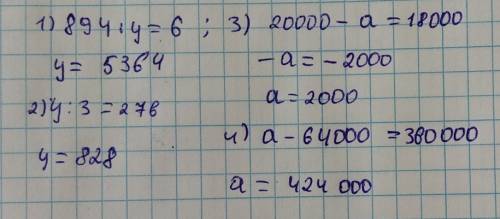 1) 894 : y = 6 ;
y = 5364
2) y : 3 = 276
y = 828
3) 20000 - a = 18000
-a = -2000
a = 2000
4) a - 64000 = 360000
a = 424 000